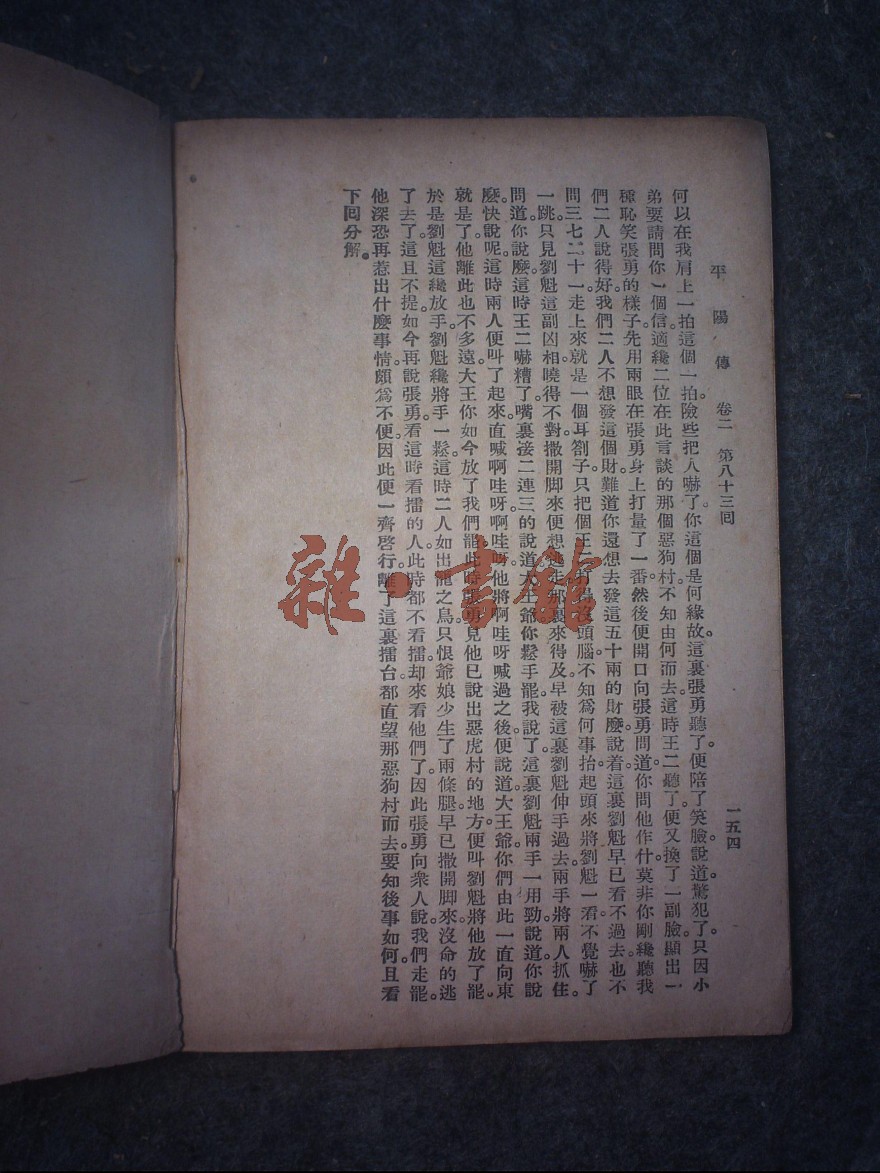 平陽傳 卷二 第八十三回 一五四
何以在我肩上一拍這個一拍險些把人嚇了你這個是何緣故。這裏張勇聽了。便陪了笑臉說道。驚犯了。只因小
弟要請問你一個信適纔二位在此言談的那個惡狗村。不知由何而去。這時王二聽了。便又換了一副臉。顯出一
種恥笑張勇的樣子。先用兩眼在張勇身上打量了一番。然後便開口向張勇問道。你問他作什。莫非你剛纔聽我
們二人說得好。我們二人不想發這個財。難道你還想去發這五十兩的財麼。說着。這裏劉魁早已看不過去。也不
問三七二十一。走上來就是一個耳劄子。只把個王二打沒頭腦。不知爲何事。抬起頭來將劉魁一看。不覺嚇了
一跳。只見劉魁這副凶相。曉得不對。撒開脚來便想逃走。那裏來得及。早被這裏劉魁伸手過去。兩手將兩人抓住。
問道。你說麼。這時王二嚇糟了。嘴裏接二連三的說道。大王爺你鬆手罷。我說了。這裏劉魁兩手一用勁。說道。你說
麼。快說呢。這時兩人便叫了起來。直喊啊哇呀。啊哇呀。他將啊哇呀喊過之後。便說道。大王爺。你們由此一直向東
就是了。他離此也不多遠。大王你如今放了我們罷。此時張勇見他已說出惡虎村的地方。便叫劉魁將他放了罷。
於是劉魁這纔放手。劉魁纔將手一鬆。這時二人如出籠之鳥。只恨爺娘少生了兩條腿。早已撒開脚來。沒命的逃
了去了。這且不提。如今再說張勇。看這時看擂的人。此時都不看擂。却來看他們了。因此張勇向衆人說。我們走罷。
他深恐再惹出什麼事情。頗爲不便。因此便一齊啓行。離了這裏擂台。都直望那惡狗村而去。要知後事如何。且看
下回分解。
雜·書館